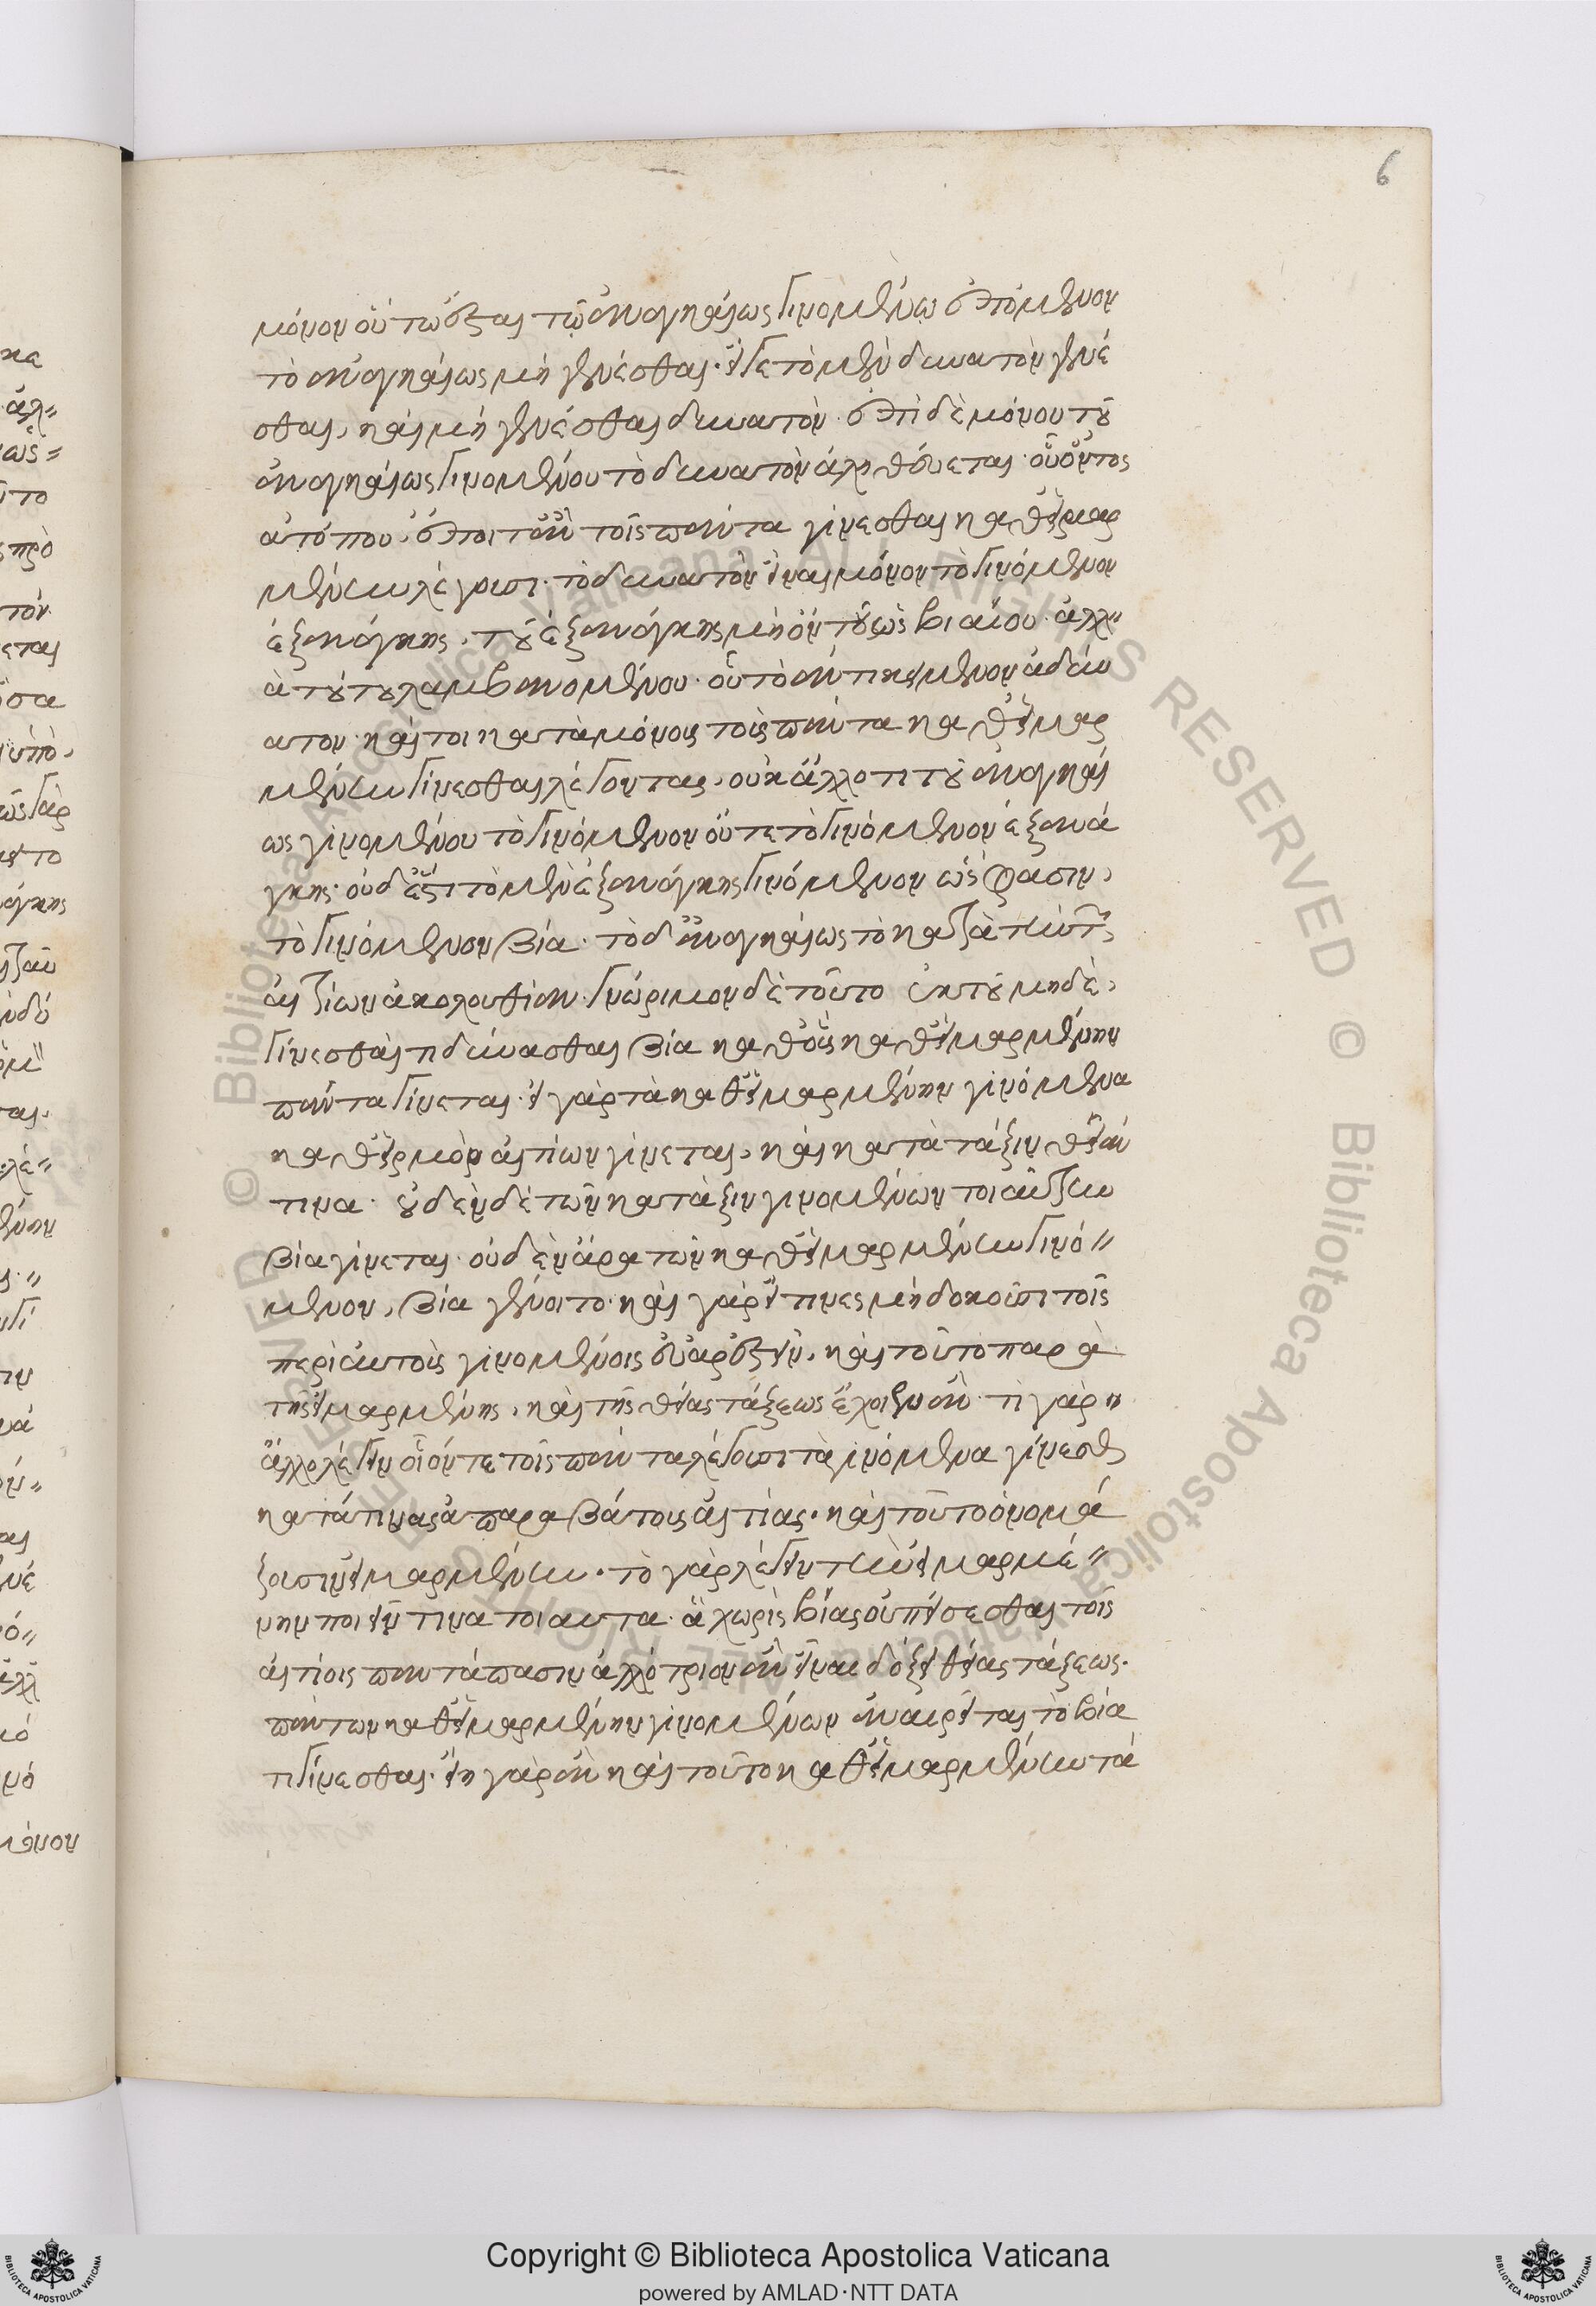 6
μόνον οὕτως ἔσται τῶ ἀναγκαίως γινομένω ἑπόμενον
τὸ ἀναγκαίως μὴ γενέσθαι. εἴγε τὸ μὲν δυνατὸν γενέ
σθαι, καὶ μὴ γενέσθαι δυνατὸν. ἐπὶ δὲ μόνου τοῦ
ἀναγκαίως γινομένου τὸ δυνατὸν ἀληθεύεται. οὗ ὄντος
ἀτόπου, ἕποιτ' ἂν τοῖς πάντα γίνεσθαι καθ' εἱμαρ
μένην λέγουσι. τὸ δυνατὸν εἶναι μόνον τὸ γινόμενον
ἐξ ἀνάγκης, τοῦ ἐξ ἀνάγκης μὴ ὄντος ὡς βιαίου. ἀλλ
ὰ τούτου λαμβανομένου. οὗ τὸ ἀντικείμενον ἀδύν
ατον. καίτοι κατὰ μόνοις τοῖς πάντα καθ' εἱμαρ
μένην γίνεσθαι λέγοντας, οὐκ ἄλλο τι τοῦ ἀναγκαί
ως γινομένου τὸ γινόμενον οὔτε τὸ γινόμενον ἐξ ἀνά
γκης. οὐδ' ἔστι τὸ μὲν ἐξ ἀνάγκης γινόμενον ὥς φασιν,
τὸ γινόμενον βία. τὸ δ' ἀναγκαίως τὸ κατὰ τὴν τῶν
αἰτίων ἀκολουθίαν. γνώριμον δὲ τοῦτο ἐκ τοῦ μηδὲ
γίνεσθαί τι δύνασθαι βία καθ' οὓς καθ' εἱμαρμένην
πάντα γίνεται. εἰ γὰρ τὰ καθ' εἱμαρμένην γινόμενα
καθ' εἱρμὸν αἰτίων γίνεται, καὶ κατὰ τάξιν θείαν
τινα. οὐδὲν δὲ τῶν κατὰ τάξιν γινομένων τοιαύτην
βία γίνεται. οὐδὲν ἄρα τῶν καθ' εἱμαρμένην γινό
μενον, βία γένοιτο. καὶ γὰρ εἴ τινες μὴ δοκοῦσι τοῖς
περὶ αὐτοὺς γινομένοις εὐαρεστεῖν, καὶ τοῦτο παρὰ
τῆς εἱμαρμένης, καὶ τῆς θείας τάξεως ἔχοιεν ἂν. τί γὰρ
ἄλλο λέγειν οἷόν τε τοῖς πάντα λέγουσι τὰ γινόμενα γίνεσθαι
κατά τινας ἀπαραβάτους αἰτίας. καὶ τοῦτο ὀνομά
ζουσιν εἱμαρμένην. τὸ γὰρ λέγειν τὴν εἱμαρμέ
νην ποιεῖν τινα τοιαυτα. ἃ χωρὶς βίας οὐ πείσεσθαι τοῖς
αἰτίοις παντάπασιν ἀλλότριον ἂν εἶναι δόξει θείας τάξεως.
πάντων καθ' εἱμαρμένην γινομένων ἀναιρεῖται τὸ βία
τι γίνεσθαι. εἴη γὰρ ἂν καὶ τοῦτο καθ' εἱμαρμένην τὰ